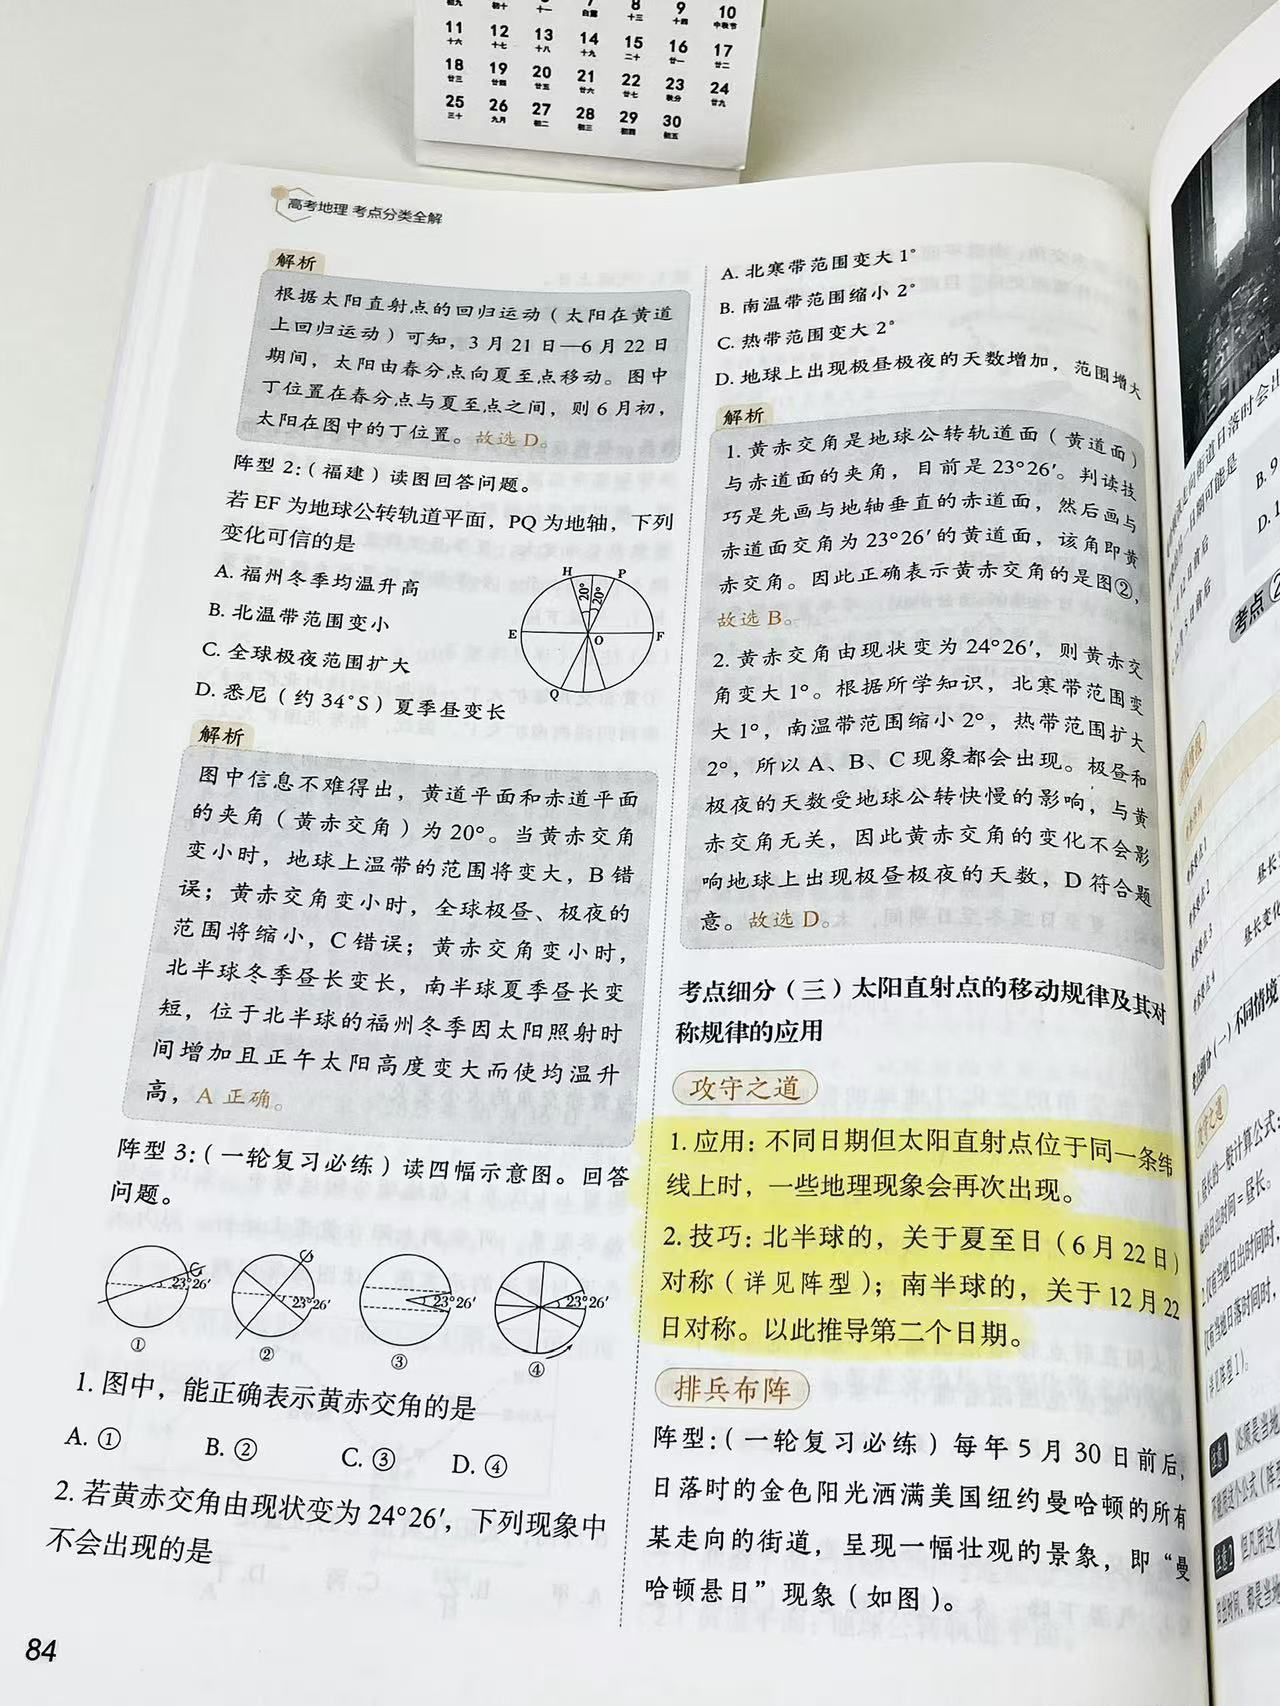 10
中秋节
11 12 13 14 15 16 17
十六 十七 十八 十九 二十 廿一 廿二
18 19 20 21 22 23 24
廿三 廿四 廿五 廿六 廿七 秋分 廿九
25 26 27 28 29 30
三十 九月 初二 初三 初四 初五
高考地理 考点分类全解
解析
根据太阳直射点的回归运动（太阳在黄道
上回归运动）可知，3月21日—6月22日
期间，太阳由春分点向夏至点移动。图中
丁位置在春分点与夏至点之间，则6月初，
太阳在图中的丁位置。故选D。
阵型2：（福建）读图回答问题。
若EF为地球公转轨道平面，PQ为地轴，下列
变化可信的是
A. 福州冬季均温升高
B. 北温带范围变小
C. 全球极夜范围扩大
D. 悉尼（约34°S）夏季昼变长
H P
20° 20°
E O F
Q
解析
图中信息不难得出，黄道平面和赤道平面
的夹角（黄赤交角）为20°。当黄赤交角
变小时，地球上温带的范围将变大，B错
误；黄赤交角变小时，全球极昼、极夜的
范围将缩小，C错误；黄赤交角变小时，
北半球冬季昼长变长，南半球夏季昼长变
短，位于北半球的福州冬季因太阳照射时
间增加且正午太阳高度变大而使均温升
高，A正确。
阵型3：（一轮复习必练）读四幅示意图。回答
问题。
23°26′ 23°26′ 23°26′ 23°26′
① ② ③ ④
1. 图中，能正确表示黄赤交角的是
A. ① B. ② C. ③ D. ④
2. 若黄赤交角由现状变为24°26′，下列现象中
不会出现的是
84
A. 北寒带范围变大1°
B. 南温带范围缩小2°
C. 热带范围变大2°
D. 地球上出现极昼极夜的天数增加，范围增大
解析
1. 黄赤交角是地球公转轨道面（黄道面）
与赤道面的夹角，目前是23°26′。判读技
巧是先画与地轴垂直的赤道面，然后画与
赤道面交角为23°26′的黄道面，该角即黄
赤交角。因此正确表示黄赤交角的是图②，
故选B。
2. 黄赤交角由现状变为24°26′，则黄赤交
角变大1°。根据所学知识，北寒带范围变
大1°，南温带范围缩小2°，热带范围扩大
2°，所以A、B、C现象都会出现。极昼和
极夜的天数受地球公转快慢的影响，与黄
赤交角无关，因此黄赤交角的变化不会影
响地球上出现极昼极夜的天数，D符合题
意。故选D。
考点细分（三）太阳直射点的移动规律及其对
称规律的应用
攻守之道
1. 应用：不同日期但太阳直射点位于同一条纬
线上时，一些地理现象会再次出现。
2. 技巧：北半球的，关于夏至日（6月22日）
对称（详见阵型）；南半球的，关于12月22
日对称。以此推导第二个日期。
排兵布阵
阵型：（一轮复习必练）每年5月30日前后，
日落时的金色阳光洒满美国纽约曼哈顿的所有
某走向的街道，呈现一幅壮观的景象，即“曼
哈顿悬日”现象（如图）。
B. 9
D. 1
考点②